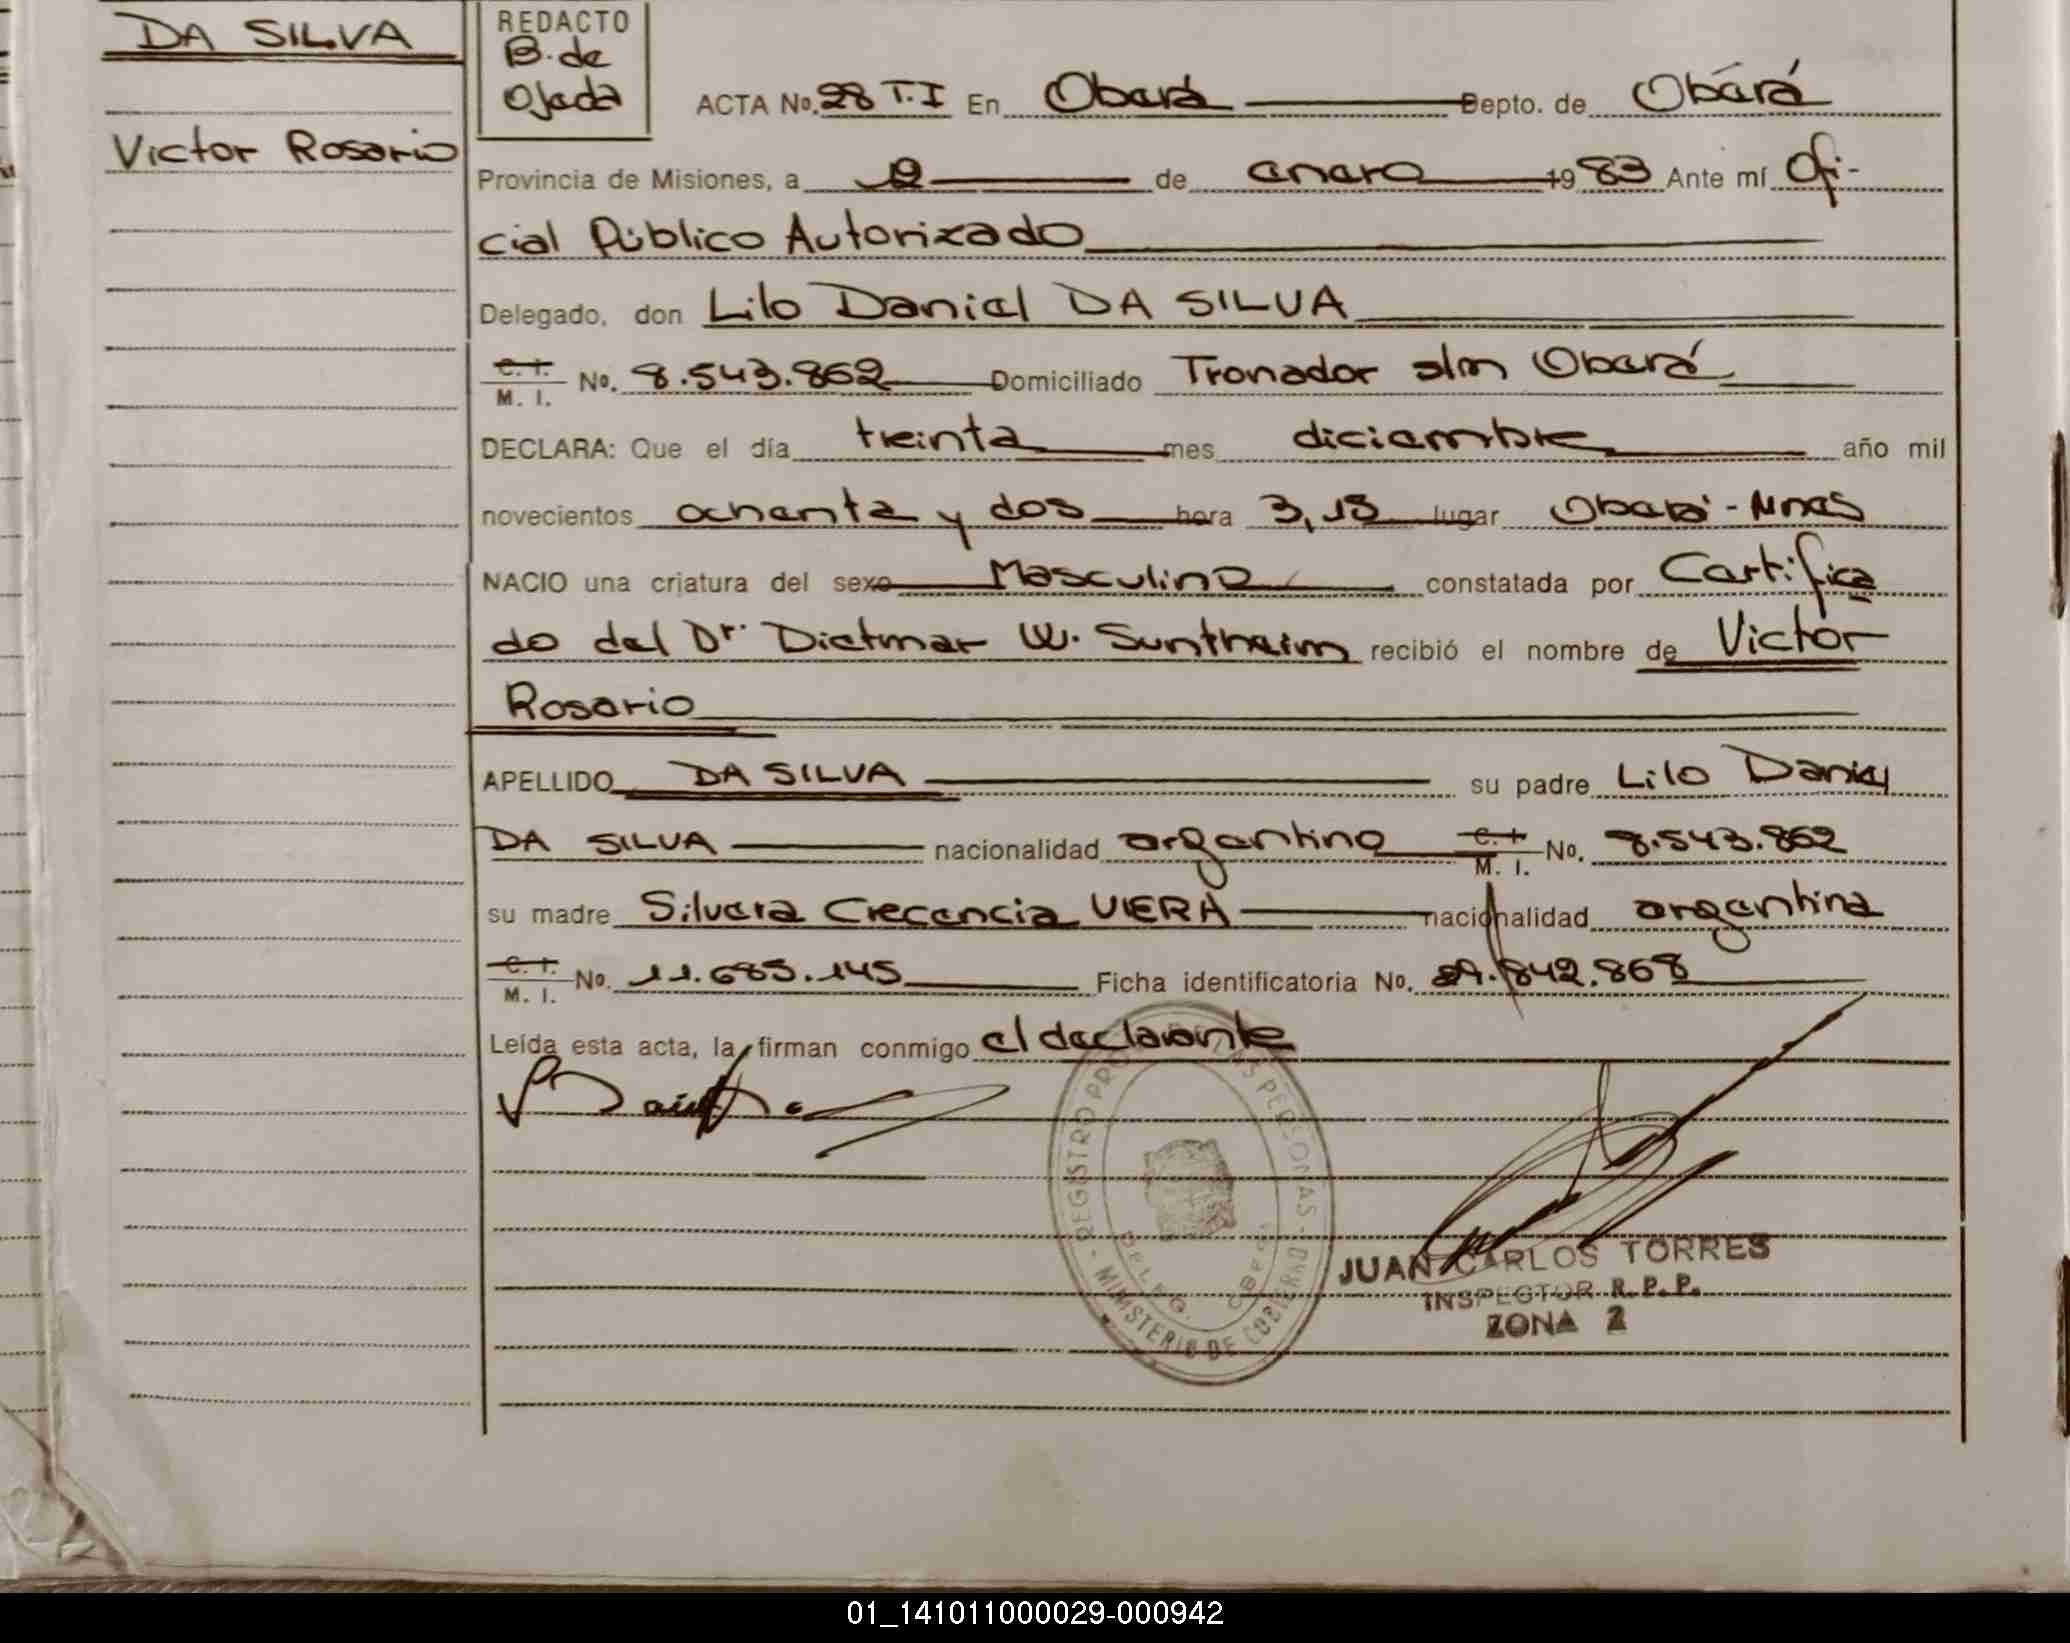 DA SILVA
Victor Rosario
REDACTO
B. de
Ojeda
ACTA No. 28 T.I En Oberá Depto. de Oberá
Provincia de Misiones, a de enero 1983 Ante mí Ofi-
cial Público Autorizado
Delegado, don Lilo Daniel DA SILVA
C. I. M. I. No. 8.543.862 Domiciliado Tronador s/n Oberá
DECLARA: Que el día treinta mes diciembre año mil
novecientos ochenta y dos hora 3,15 lugar Oberá - Mnes
NACIO una criatura del sexo Masculino constatada por Certifica
do del Dr. Dietmar W. Suntheim recibió el nombre de Victor
Rosario
APELLIDO DA SILVA su padre Lilo Daniel
DA SILVA nacionalidad argentino C. I. M. I. No. 8.543.862
su madre Silvera Crecencia VIERA nacionalidad argentina
C. I. M. I. No. 11.685.145 Ficha identificatoria No. 29.842.868
Leída esta acta, la firman conmigo el declarante
REGISTRO PERSONAS
MINISTERIO DE GOBIERNO
DELEG. OBERA
JUAN CARLOS TORRES
INSPECTOR R.P.P.
ZONA 2
01_141011000029-000942